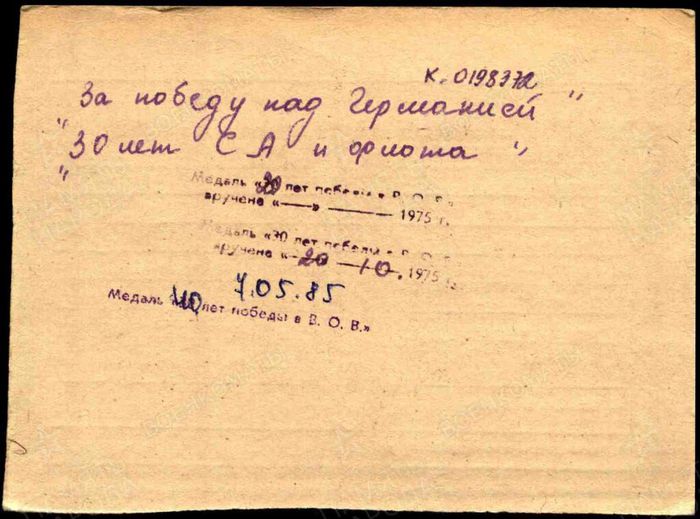 К. 0198372
За победу над Германией"
"30 лет СА и флота"
"
Медаль «20 лет победы в В. О. В.»
вручена «—» ——— 1975 г.
Медаль «30 лет победы в В. О. В.
вручена «20—10. 1975 г.
7.05.85
Медаль «40 лет победы в В. О. В.»